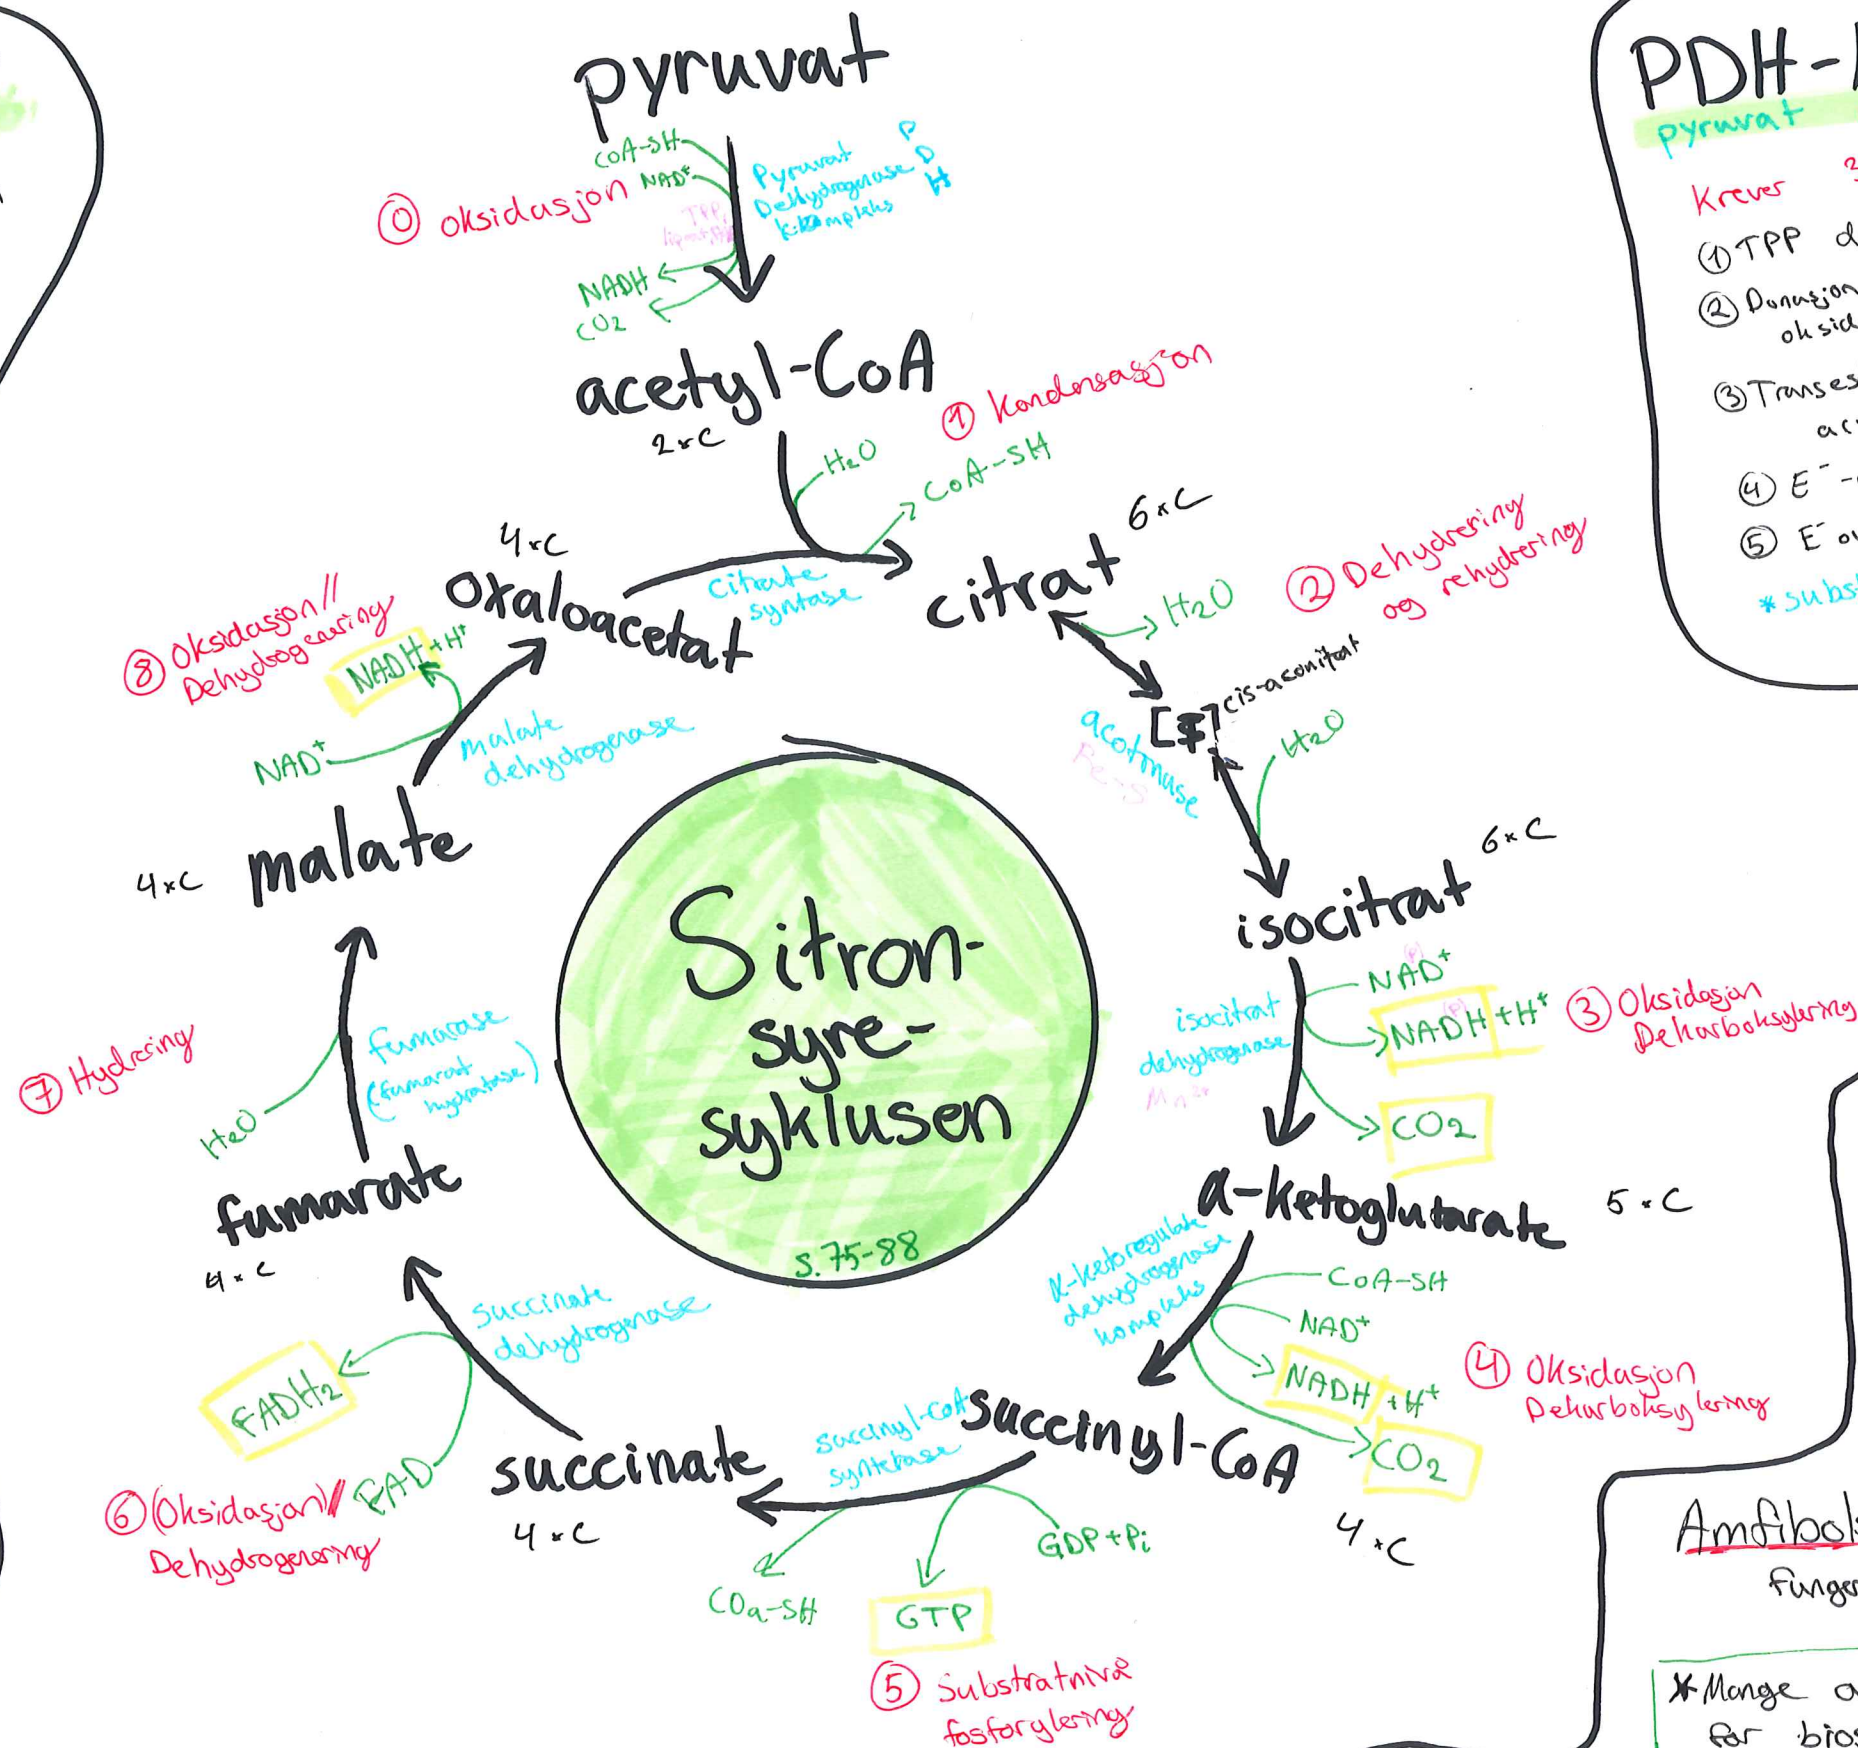 pyruvat
CoA-SH
NAD⁺
⓪ oksidasjon
TPP,
Pyruvat
Dehydrogenase
kompleks
P
D
H
NADH
CO2
acetyl-CoA
2×C
① Kondensasjon
H2O
CoA-SH
4×C
Oxaloacetat
citrate
syntase
citrat
6×C
② Dehydrering
og rehydrering
H2O
cis-aconitat
acotinase
Fe-S
H2O
isocitrat
6×C
(P)
NAD⁺
(P)
NADH+H⁺
CO2
isocitrat
dehydrogenase
Mn²⁺
③ Oksidasjon
Dekarboksylering
α-ketoglutarate
5×C
α-ketoregulate
dehydrogenase
kompleks
CoA-SH
NAD⁺
NADH+H⁺
CO2
④ Oksidasjon
Dekarboksylering
succinyl-CoA
4×C
succinyl-CoA
syntetase
GDP+Pi
GTP
COa-SH
⑤ Substratnivå
fosforylering
succinate
4×C
succinate
dehydrogenase
FAD
FADH2
⑥ (Oksidasjon)/
Dehydrogenering
fumarate
4×C
fumarase
(fumarat
hydratase)
H2O
⑦ Hydrering
malate
4×C
malate
dehydrogenase
NAD⁺
NADH+H⁺
⑧ Oksidasjon//
Dehydrogenering
Sitron-
syre-
syklusen
s.75-88
PDH-
pyruvat
Krever
① TPP
② Donasjon
oksid
③ Transes
ac
④ E⁻-
⑤ E⁻ ov
*subs
Amfibol
funger
*Mange a
for bios